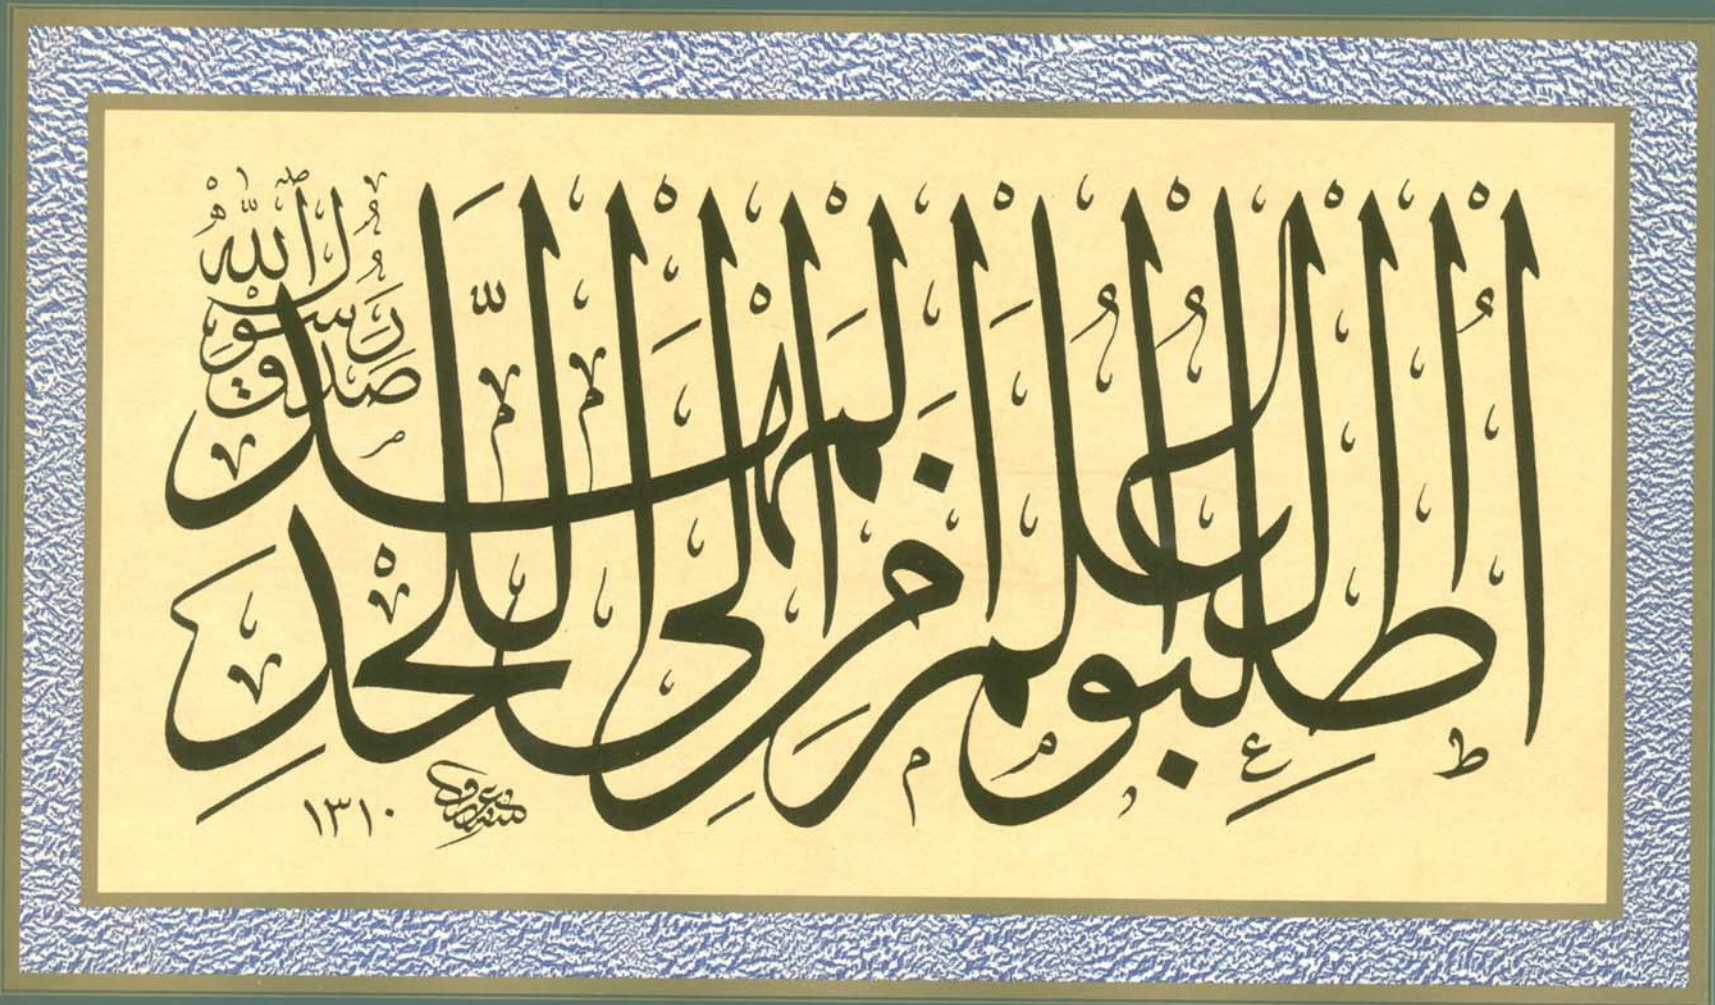 اُطْلُبُوا الْعِلْمَ مِنَ الْمَهْدِ إِلَى اللَّحْدِ
صَدَقَ رَسُولُ اللهِ
١٣١٠